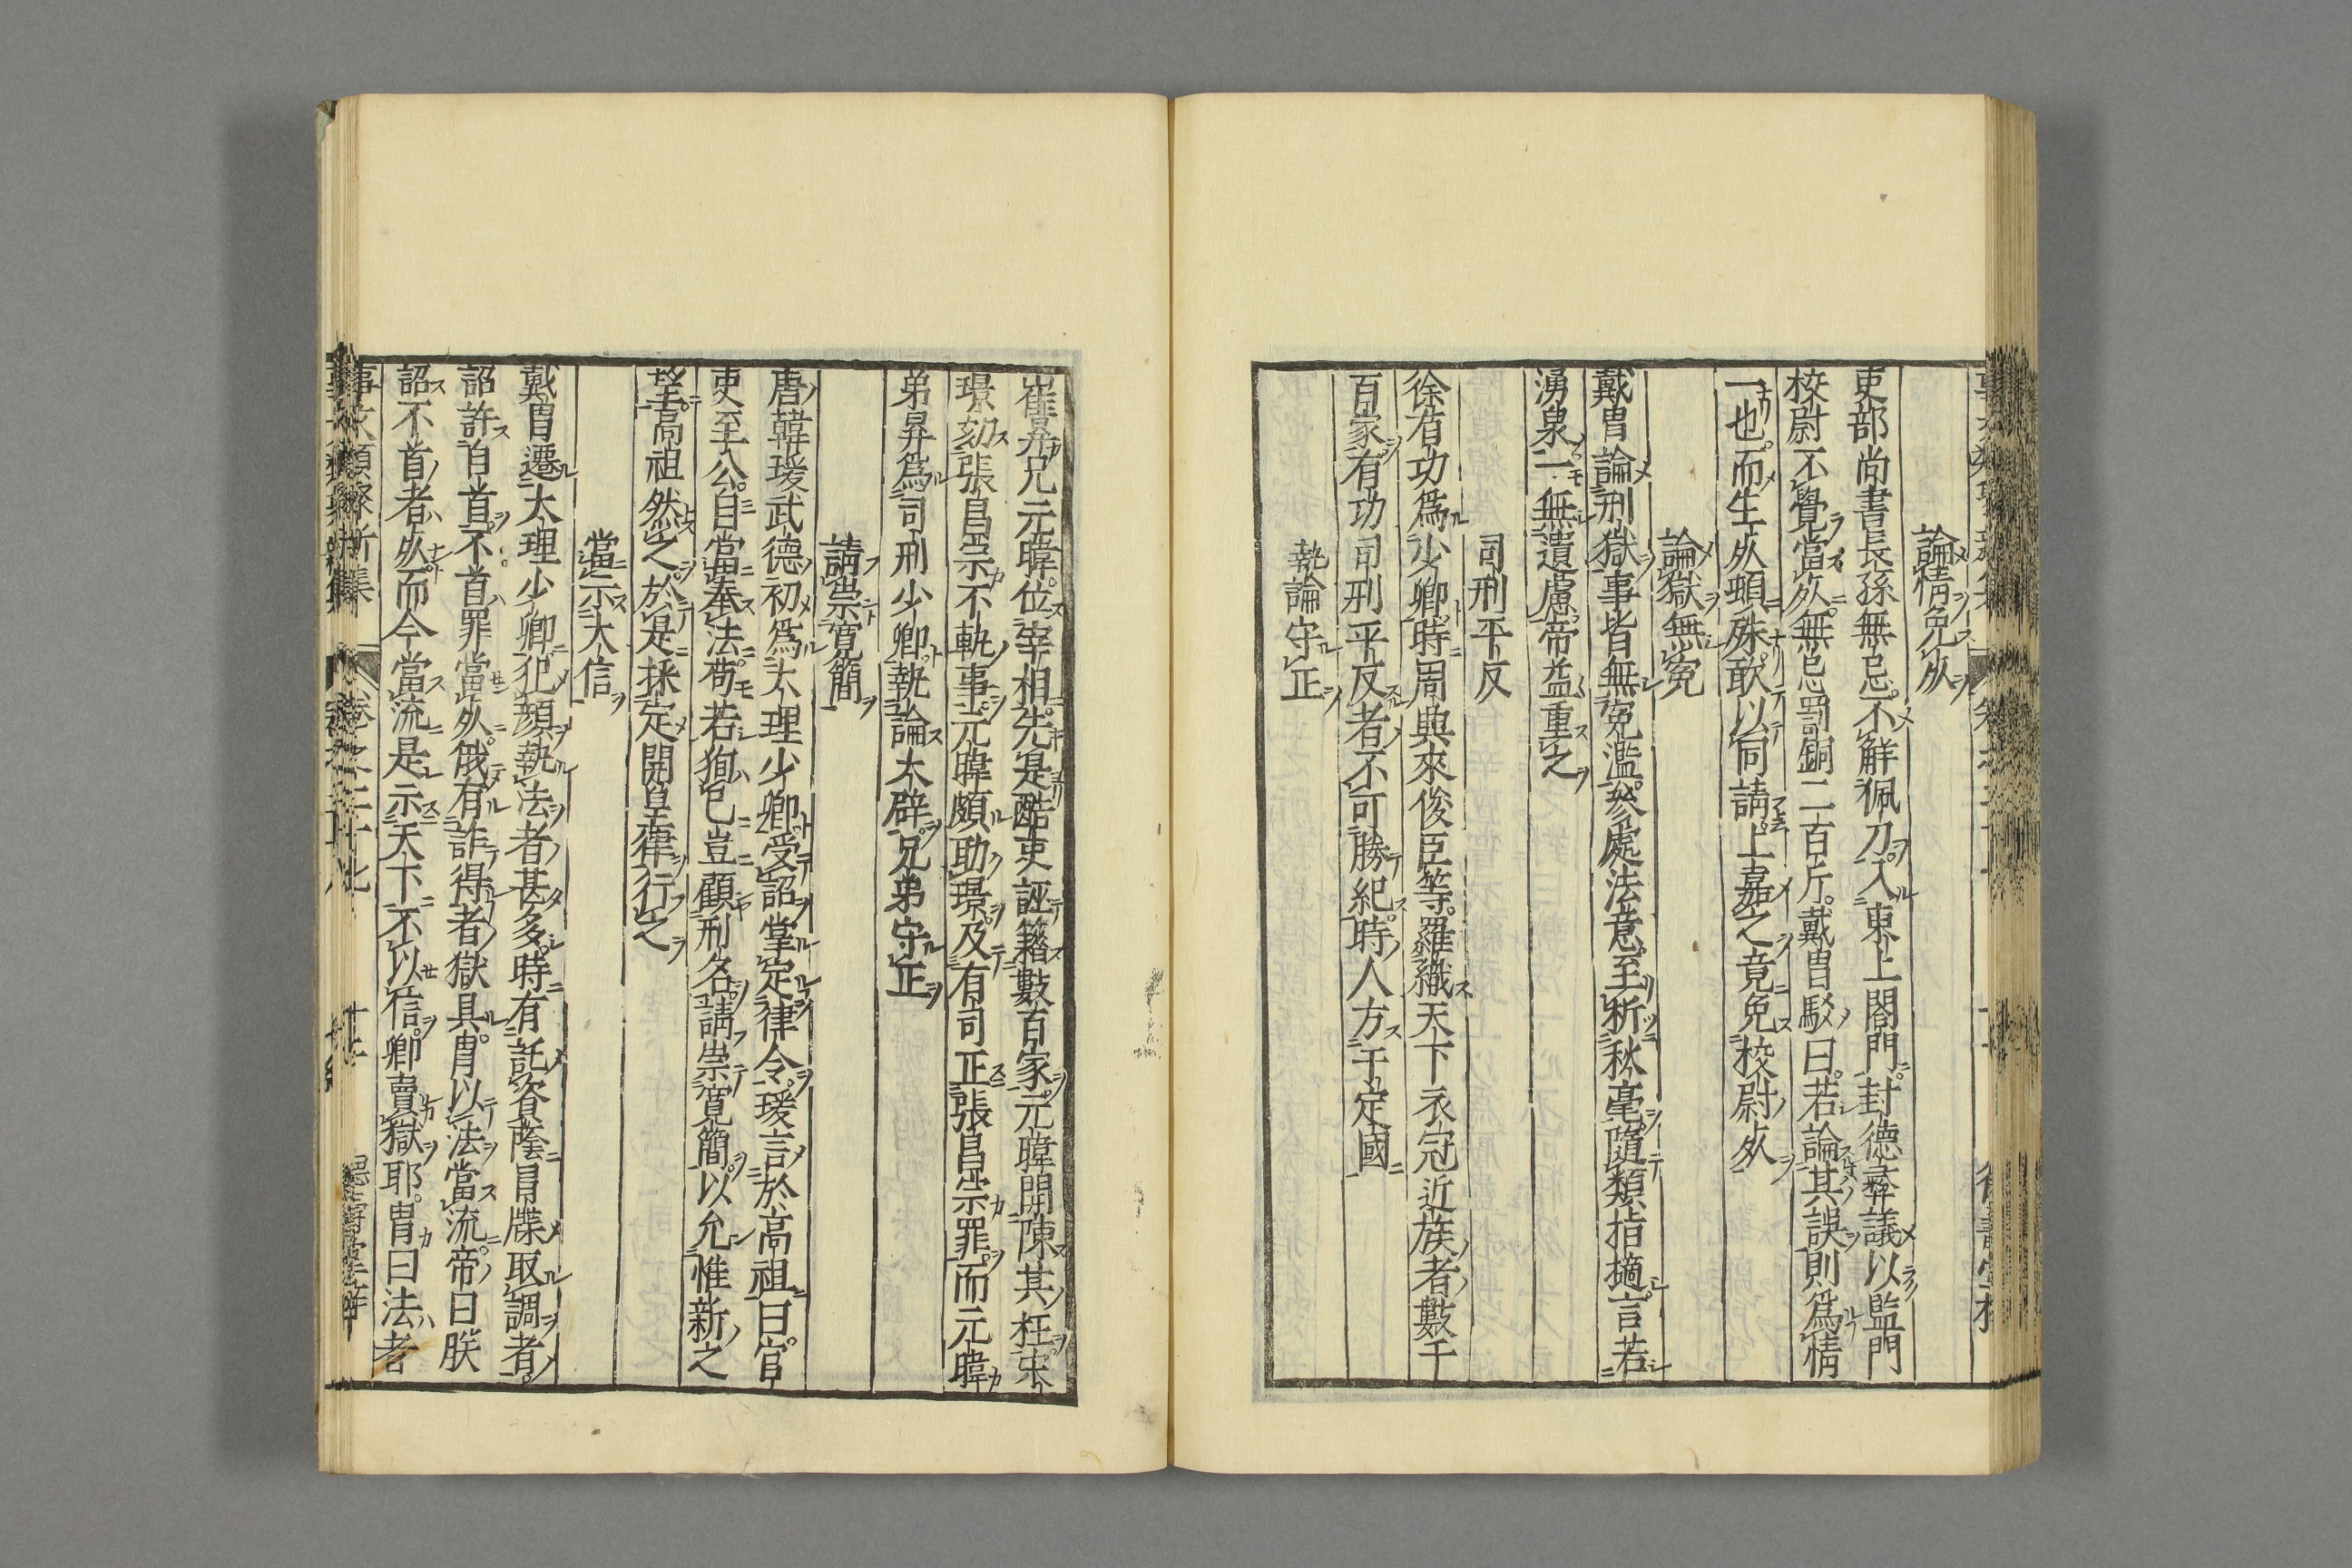 論情免死
吏部尚書長孫無忌不觧佩刀入東上閤門封德彝議以監門
校尉不覺當死無忌罰銅二百斤戴胄駁曰若論其誤則爲情
一也而生死頓殊敢以同請上嘉之竟免校尉死
論獄無冤
戴胄論刑獄事皆無冤濫參處法意至析秋毫隨類指擿言若
湧泉一無遺慮帝益重之
司刑平反
徐有功爲少卿時周興來俊臣等羅織天下衣冠近族者數千
百家有功司刑平反者不可勝紀時人方于定國
執論守正
崔昪兄元暐位宰相先是酷吏誣籍數百家元暐開陳其枉宋
璟劾張昌宗不軌事元暐頗助璟及有司正張昌宗罪而元暐
弟昪爲司刑少卿執論大辟兄弟守正
請崇寛簡
唐韓瑗武德初爲大理少卿受詔掌定律令瑗言於高祖曰官
吏至公自當奉法苟若狥己豈顧刑名請崇寛簡以允惟新之
望高祖然之於是採定開皇律行之
當示大信
戴胄遷大理少卿犯顔執法者甚多時有託資蔭冒牒取調者
詔許自首不首罪當死俄有詐得者獄具胄以法當流帝曰朕
詔不首者死而今當流是示天下不以信卿賣獄耶胄曰法者
事文類聚新集 卷之二十九